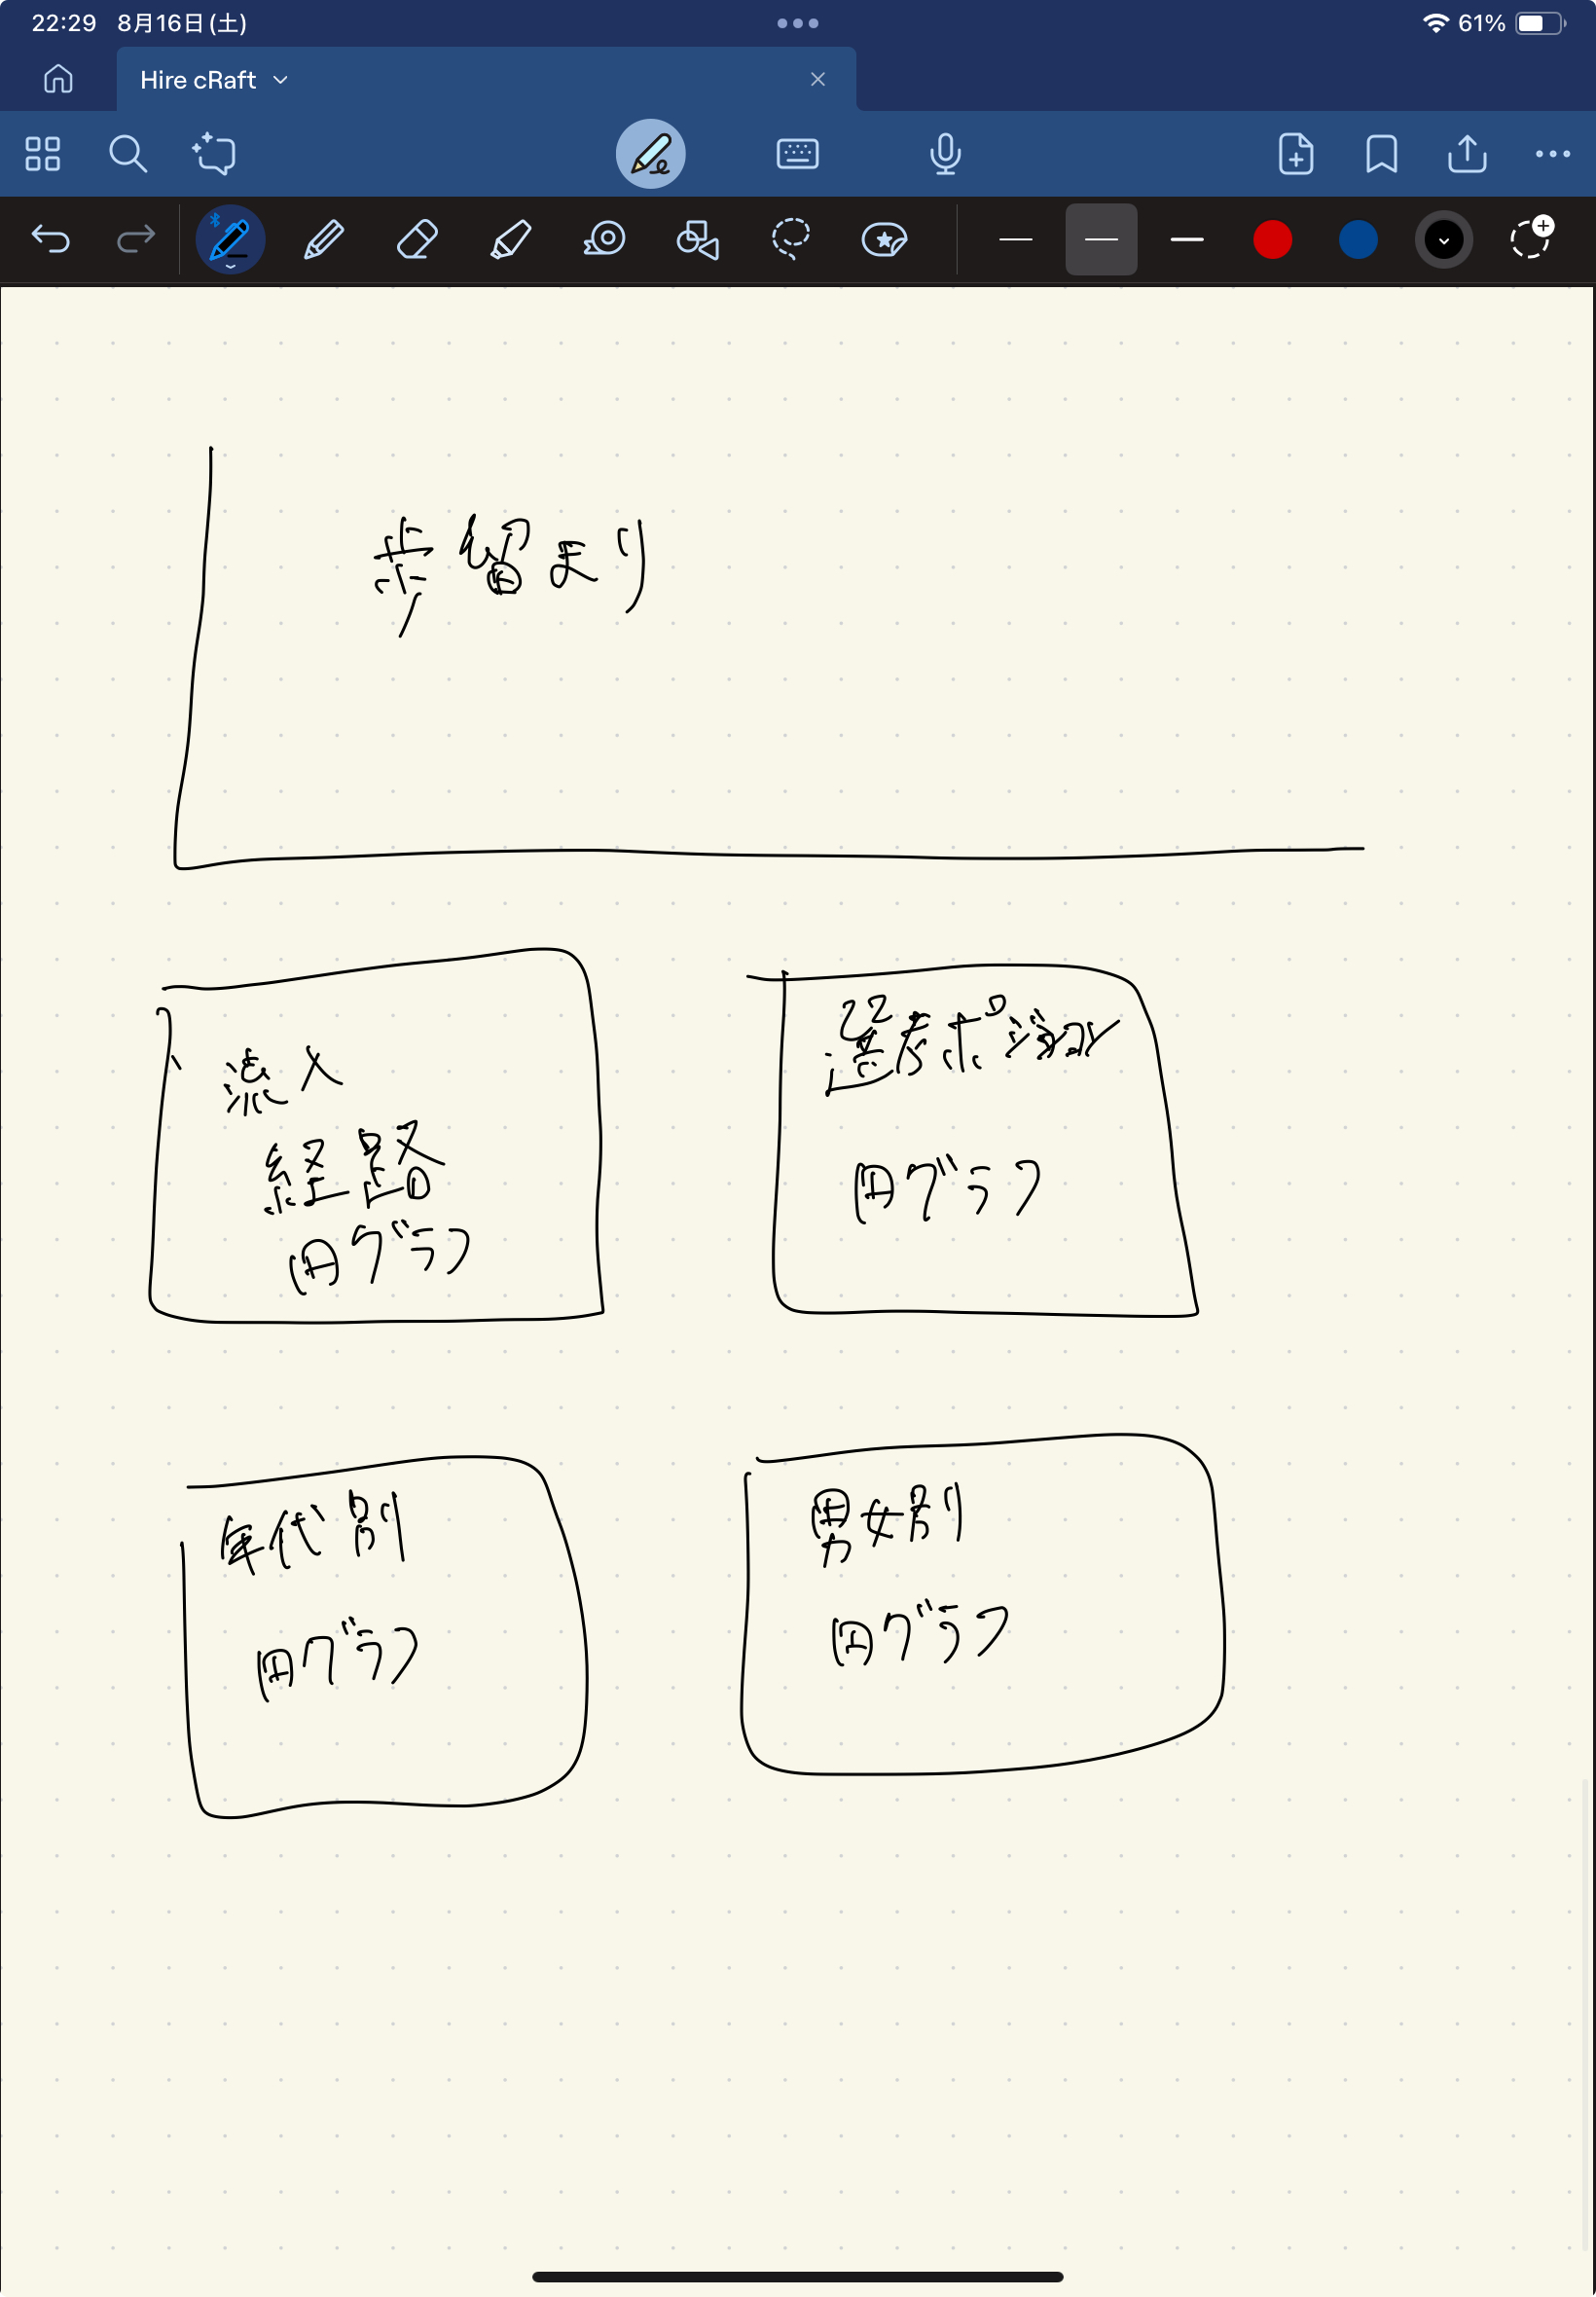 22:29 8月16日(土)
61%
Hire cRaft
歩留まり
流入
経路
円グラフ
選考ポジション
円グラフ
年代別
円グラフ
男女別
円グラフ